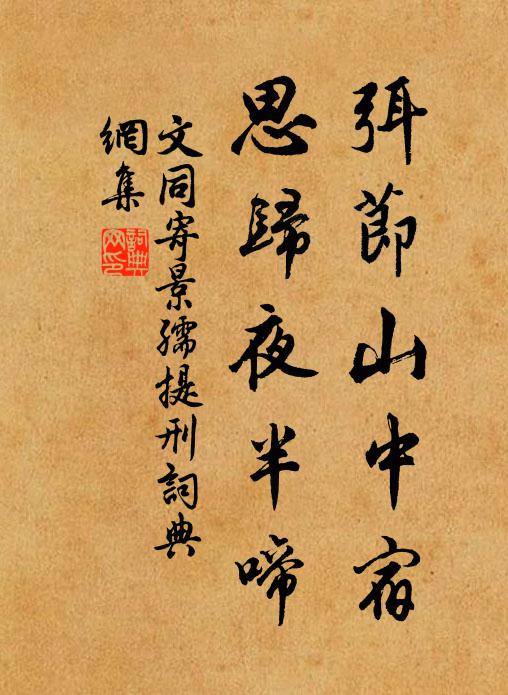 弭節山中宿
思歸夜半啼
文同寄景孺提刑詞典
網集
詞典網印